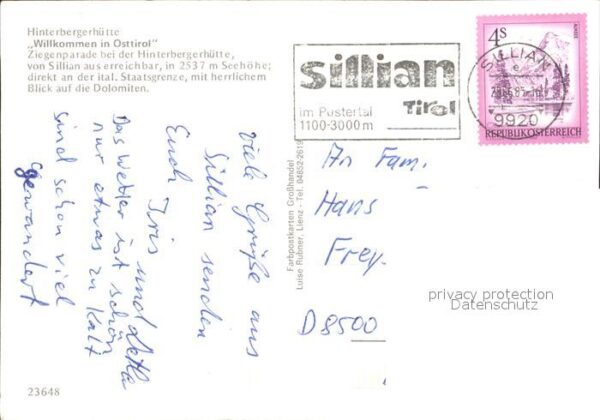 Hinterbergerhütte
„Willkommen in Osttirol"
Ziegenparade bei der Hinterbergerhütte,
von Sillian aus erreichbar, in 2537 m Seehöhe;
direkt an der ital. Staatsgrenze, mit herrlichem
Blick auf die Dolomiten.
sillian
Tirol
im Pustertal
1100-3000 m
4S
REPUBLIK ÖSTERREICH
SILLIAN
9920
Viele Grüße aus
Sillian senden
Euch Iris und
Das Wetter ist schön
nur etwas zu kalt
sind schon viel
gewandert
Farbpostkarten Großhandel
Luise Rubner, Lienz - Tel. 04852-2619
An Fam.
Hans
Frey
D 8500
privacy protection
Datenschutz
23648